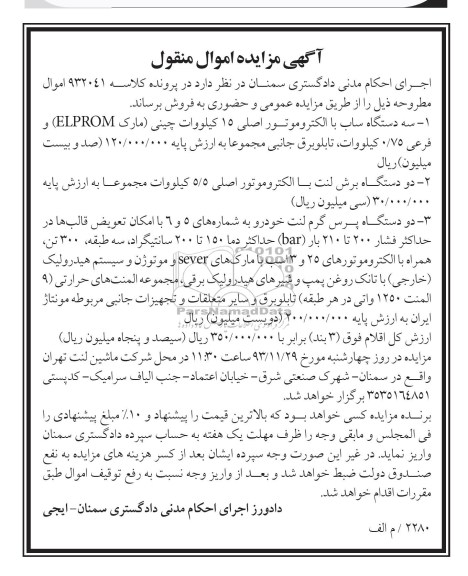 آگهی مزایده اموال منقول
اجرای احکام مدنی دادگستری سمنان در نظر دارد در پرونده کلاسه ۹۳۲۰۴۱ اموال
مطروحه ذیل را از طریق مزایده عمومی و حضوری به فروش برساند.
۱- سه دستگاه ساب با الکتروموتور اصلی ۱۵ کیلووات چینی (مارک ELPROM) و
فرعی ۰/۷۵ کیلووات، تابلوبرق جانبی مجموعا به ارزش پایه ۱۲۰/۰۰۰/۰۰۰ (صد و بیست
میلیون) ریال
۲- دو دستگاه برش لنت با الکتروموتور اصلی ۵/۵ کیلووات مجموعا به ارزش پایه
۳۰/۰۰۰/۰۰۰ (سی میلیون ریال)
۳- دو دستگاه پرس گرم لنت خودرو به شماره‌های ۵ و ۶ با امکان تعویض قالب‌ها در
حداکثر فشار ۲۰۰ تا ۲۱۰ بار (bar) حداکثر دما ۱۵۰ تا ۲۰۰ سانتیگراد، سه طبقه، ۳۰۰ تن،
همراه با الکتروموتورهای ۲۵ و ۳ اسب با مارک‌های sever و موتوژن و سیستم هیدرولیک
(خارجی) با تانک روغن پمپ و شیرهای هیدرولیک برقی، مجموعه المنت‌های حرارتی (۹
المنت ۱۲۵۰ واتی در هر طبقه) تابلوبرق و سایر متعلقات و تجهیزات جانبی مربوطه مونتاژ
ایران به ارزش پایه ۲۰۰/۰۰۰/۰۰۰ (دویست میلیون) ریال
ParsNamadData
ارزش کل اقلام فوق (۳ بند) برابر با ۳۵۰/۰۰۰/۰۰۰ ریال (سیصد و پنجاه میلیون ریال)
مزایده در روز چهارشنبه مورخ ۹۳/۱۱/۲۹ ساعت ۱۱:۳۰ در محل شرکت ماشین لنت تهران
واقع در سمنان- شهرک صنعتی شرق- خیابان اعتماد- جنب الیاف سرامیک- کدپستی
۳۵۳۵۱۶۴۸۵۱ برگزار خواهد شد.
برنده مزایده کسی خواهد بود که بالاترین قیمت را پیشنهاد و ۱۰٪ مبلغ پیشنهادی را
فی المجلس و مابقی وجه را ظرف مهلت یک هفته به حساب سپرده دادگستری سمنان
واریز نماید. در غیر این صورت وجه سپرده ایشان بعد از کسر هزینه های مزایده به نفع
صندوق دولت ضبط خواهد شد و بعد از واریز وجه نسبت به رفع توقیف اموال طبق
مقررات اقدام خواهد شد.
دادورز اجرای احکام مدنی دادگستری سمنان- ایجی
۲۲۸۰ / م الف